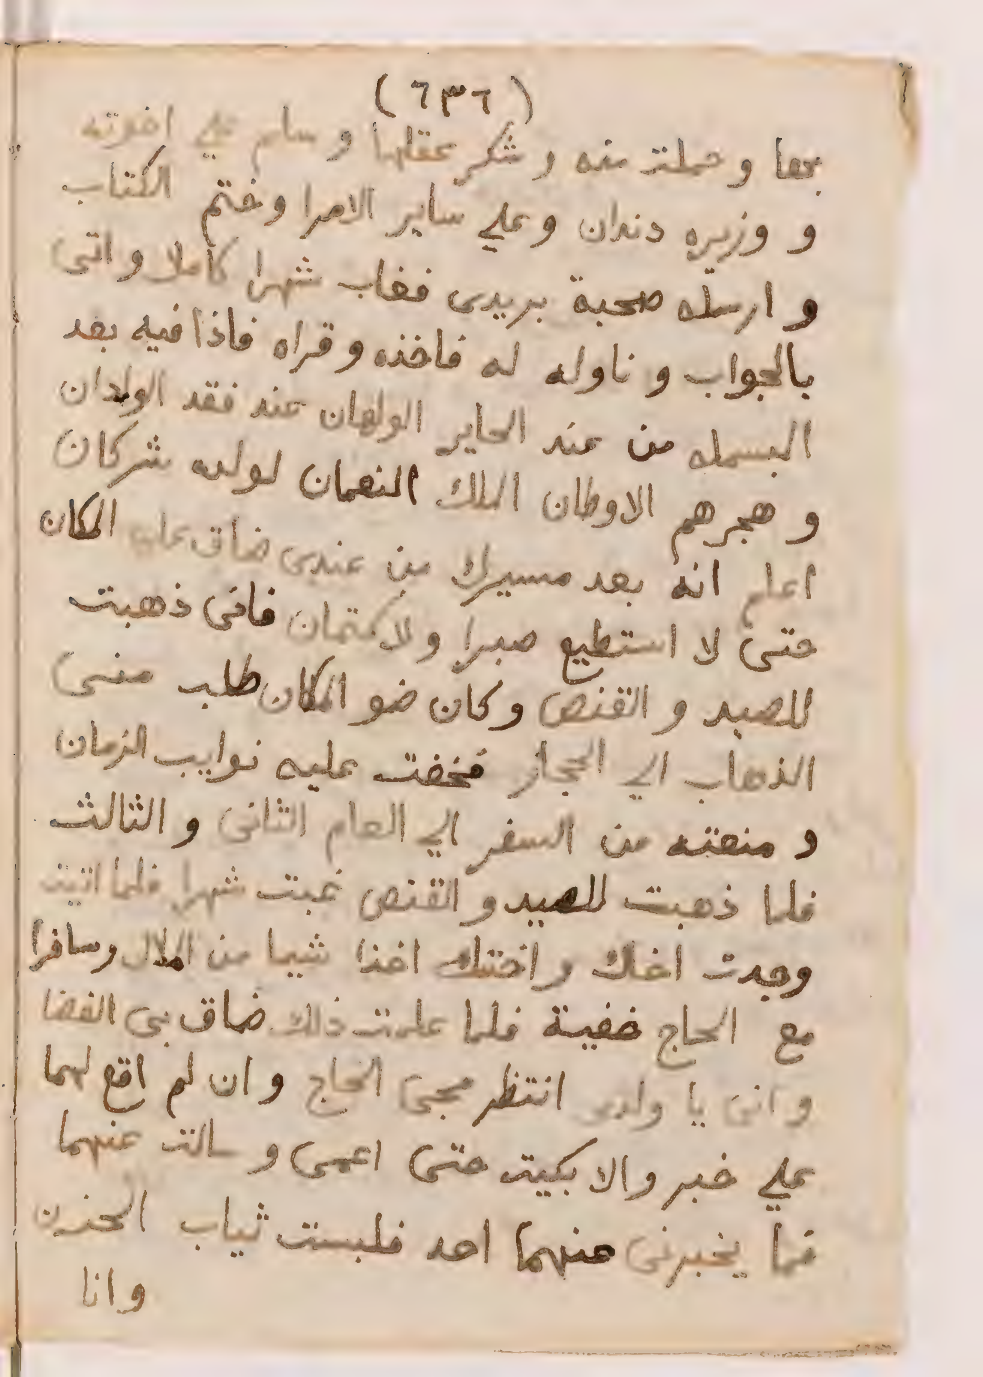 (٦٣٦)
بحقا وحملت منه وشكر عقلها وسلم علي اخوته
و وزيره دندان وعلي ساير الامرا وختم الكتاب
و ارسله صحبة بريدى فغاب شهرا كاملا واتى
بالجواب و ناوله له فاخذه وقراه فاذا فيه بعد
البسمله من عند الحاير الولهان عند فقد الولدان
و هجرهم الاوطان الملك النعمان لولده شركان
اعلم انه بعد مسيرك من عندى ضاق علي المكان
حتى لا استطيع صبرا ولا كتمان فانى ذهبت
للصيد و القنص وكان ضو المكان طلب منى
الذهاب الي الحجاز فخفت عليه نوايب الزمان
و منعته من السفر الي العام الثانى و الثالث
فلما ذهبت للصيد و القنص غبت شهرا فلما اتيت
وجدت اخاك واختك اخذا شيا من المال وسافرا
مع الحاج خفية فلما علمت ذلك ضاق بى الفضا
وانى يا ولدى انتظر مجى الحاج وان لم اقع لهما
علي خبر والا بكيت حتى اعمى وسالت عنهما
فما يخبرنى عنهما احد فلبست ثياب الحزن
وانا